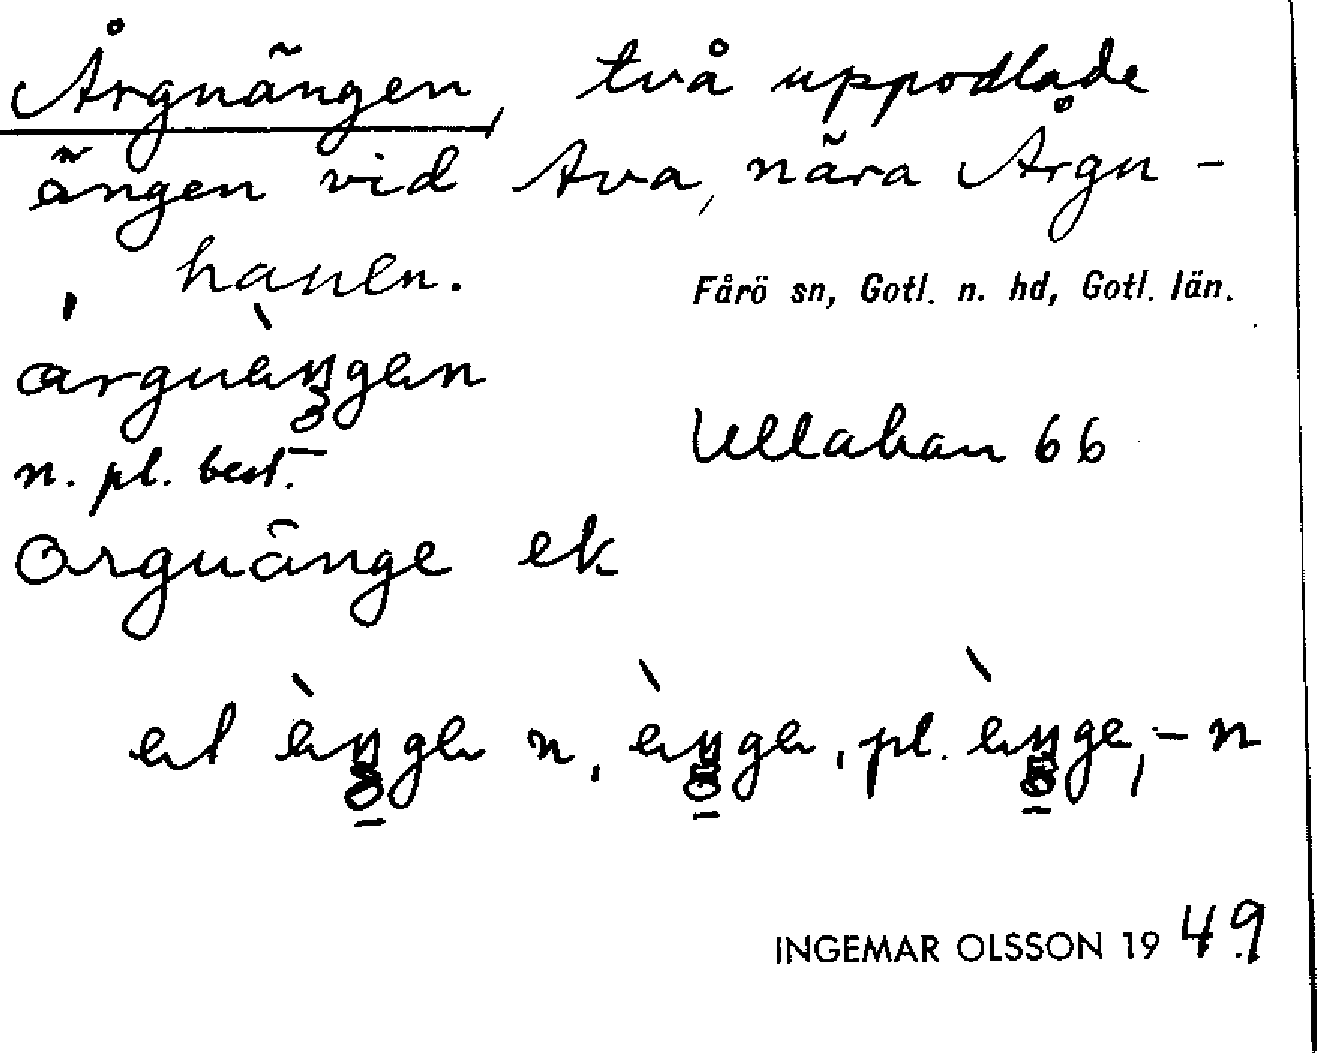 Årgnängen, två uppodlade
ängen vid Ava, nära Årgn-
hauen.
Fårö sn, Gotl. n. hd, Gotl. län.
árgnèŋgen
n. pl. best.
Ullahau 66
Orgnänge ek
et èŋge n, èŋge, pl. èŋge, -n
INGEMAR OLSSON 1949